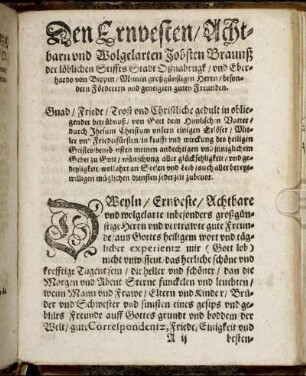 Den Ernvesten/ Acht-
barn vnd Wolgelarten Jobsten Brauniß
der löblichen Stiffts Stadt Oßnabrugk/ vnd Eber-
hardo von Meinen großgünstigen Herrn/ beson-
dern Förderern vnd geneigten guten Freunden.
Gnad/ Friede/ Trost vnd Christliche gedult in oblie-
gender betrübnuß/ von Gott dem Himlischen Vatter/
durch Jhesum Christum vnsern einigen Erlöser/ Mit-
ler vnd Friedefürsten/ in krafft vnd wirckung des heiligen
Geistes/ meinen andechtigen vnd inniglichem
Gebet zu Gott/ wünschung aller glückseligkeit/ vnd ge-
deyligkeit/ wolfahrt an Seelen vnd Leib/ auch aller bereyt-
willigen müglichen diensten jederzeit zubevor.
DWeyln/ Ernveste/ Achtbare
vnd wolgelarte inbesonders großgün-
stige Herrn vnd vertrawte gute Freun-
de/ aus Gottes heiligem wort vnd täg-
licher experientz mir (Gott lob)
nicht vnwissent/ das herliche schöne vnd
krefftige Tugent sein/ die heller vnd schöner/ dan die
Morgen vnd Abent Sterne funckeln vnd leuchten/
wenn Mann vnd Frawe/ Eltern vnd Kinder/ Brü-
der vnd Schwester vnd sunsten eines gesips vnd ge-
blüts Freunde auff Gottes grundt vnd boddem der
Welt/ gute Correspondentz, Friede/ Einigkeit vnd
A ij besten-